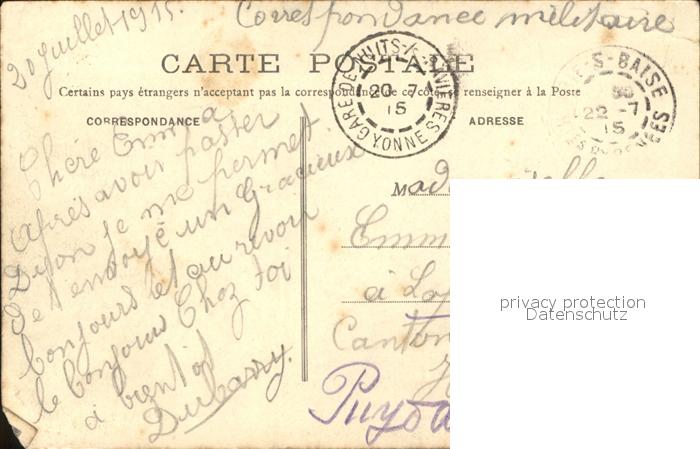 20 Juillet 1915.
Correspondance militaire
CARTE POSTALE
Certains pays étrangers n'acceptant pas la correspondance de ce côté, se renseigner à la Poste
CORRESPONDANCE
ADRESSE
GARE DE NUITS-S-RAVIÈRES
20-7
15
YONNE
S-BAISE
22-7
15
Chère Emma
Après avoir passer
Dijon je me permet
de t envoyé un Gracieux
bonjours et au revoir
le bonjour Chez toi
à bientot
Dubarry.
Mad
Emm
à La
Canton
Puyda
privacy protection
Datenschutz